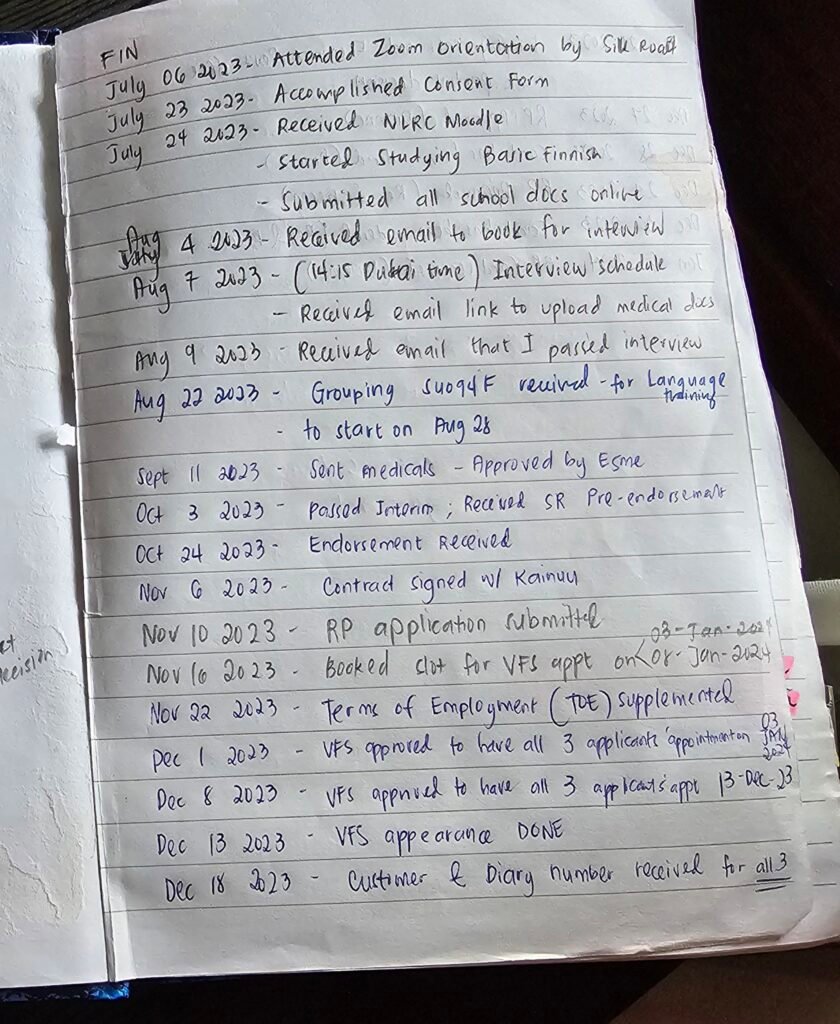 FIN
July 06 2023 - Attended Zoom orientation by Silk Road
July 23 2023 - Accomplished Consent Form
July 24 2023 - Received NLRC Moodle
- Started Studying Basic Finnish
- Submitted all school docs online
Aug 4 2023 - Received email to book for interview
Aug 7 2023 - (14:15 Dubai time) Interview schedule
- Received email link to upload medical docs
Aug 9 2023 - Received email that I passed interview
Aug 22 2023 - Grouping SU094F received - for Language training
- to start on Aug 28
Sept 11 2023 - Sent medicals - Approved by Esme
Oct 3 2023 - Passed Interim ; Received SR Pre-endorsement
Oct 24 2023 - Endorsement Received
Nov 6 2023 - Contract signed w/ Kainuu
Nov 10 2023 - RP application submitted
Nov 16 2023 - Booked slot for VFS appt on < 03-Jan-2024
08-Jan-2024
Nov 22 2023 - Terms of Employment (TOE) supplemented
Dec 1 2023 - VFS approved to have all 3 applicants' appointment on 03 JAN 2024
Dec 8 2023 - VFS approved to have all 3 applicants' appt 13-Dec-23
Dec 13 2023 - VFS appearance DONE
Dec 18 2023 - Customer & Diary number received for all 3
ecision